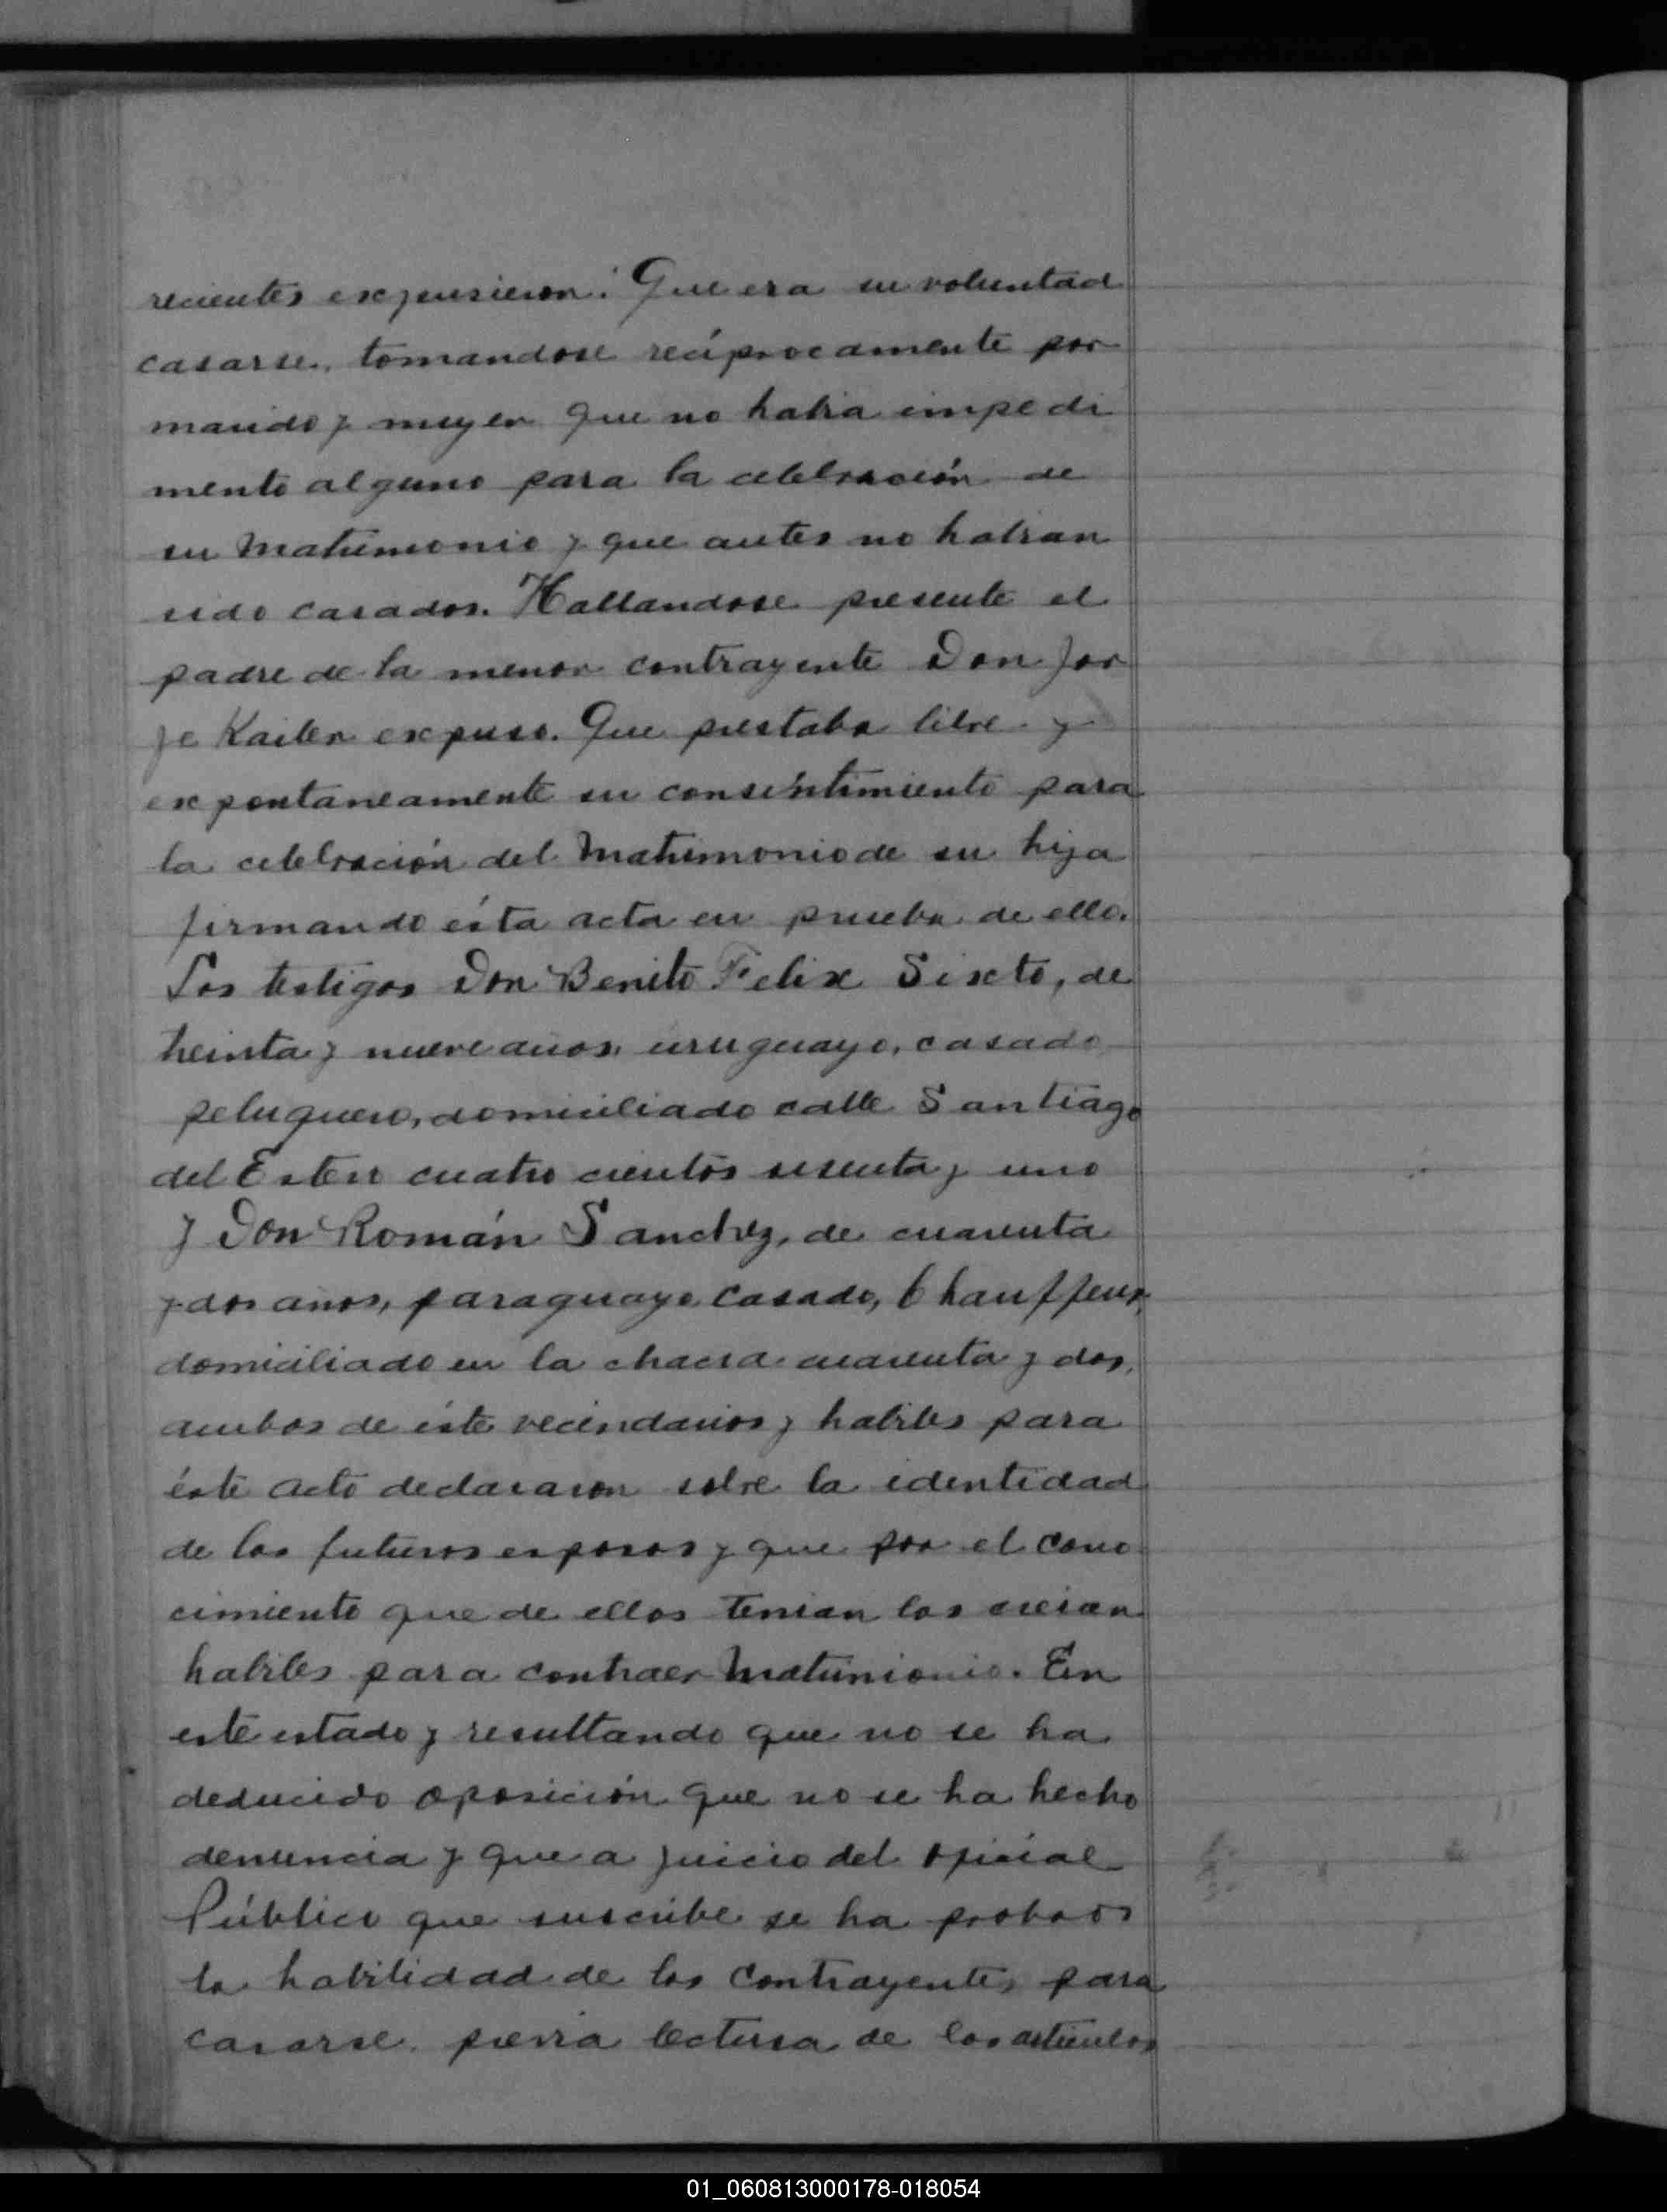 recientes expusieron: Que era su voluntad
casarse, tomandose recíprocamente por
marido y mujer que no habia impedi
mento alguno para la celebración de
su Matrimonio y que antes no habian
sido casados. Hallandose presente el
padre de la menor contrayente Don Jor
je Kailer expuso. Que prestaba libre y
expontaneamente su consentimiento para
la celebración del Matrimonio de su hija
firmando ésta acta en prueba de ello.
Los testigos Don Benito Felix Sixto, de
treinta y nueve años, uruguayo, casado
peluquero, domiciliado calle Santiago
del Estero cuatro cientos sesenta y uno
y Don Román Sanchez, de cuarenta
y dos años, paraguayo casado, Chauffeur,
domiciliado en la chacra cuarenta y dos,
ambos de éste vecindarios y habiles para
éste acto declararon sobre la identidad
de los futuros esposos y que por el cono
cimiento que de ellos tenian los creian
habiles para contraer Matrimonio. En
este estado y resultando que no se ha
deducido oposición que no se ha hecho
denuncia y que a juicio del oficial
Público que suscribe se ha probado
la habilidad de los contrayentes para
casarse, previa lectura de los articulos
01_060813000178-018054